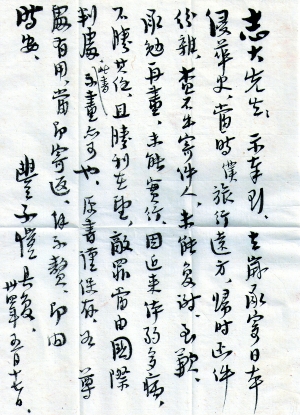 志大先生：示奉到，去歲承寄日本
侵華史，當時僕旅行遠方，歸時函件
紛雜，查不出寄件人，未能復謝，至歉。
承勉再畫，未能實行，因近來體弱多病，
不勝其任，且勝利在望，敵罪當由國際
判處，此畫不畫亦可也。原書僅保存，如尊
處有用，當即寄返，餘不贅，即問
時安。 豐子愷具復。
卅四年五月十七日